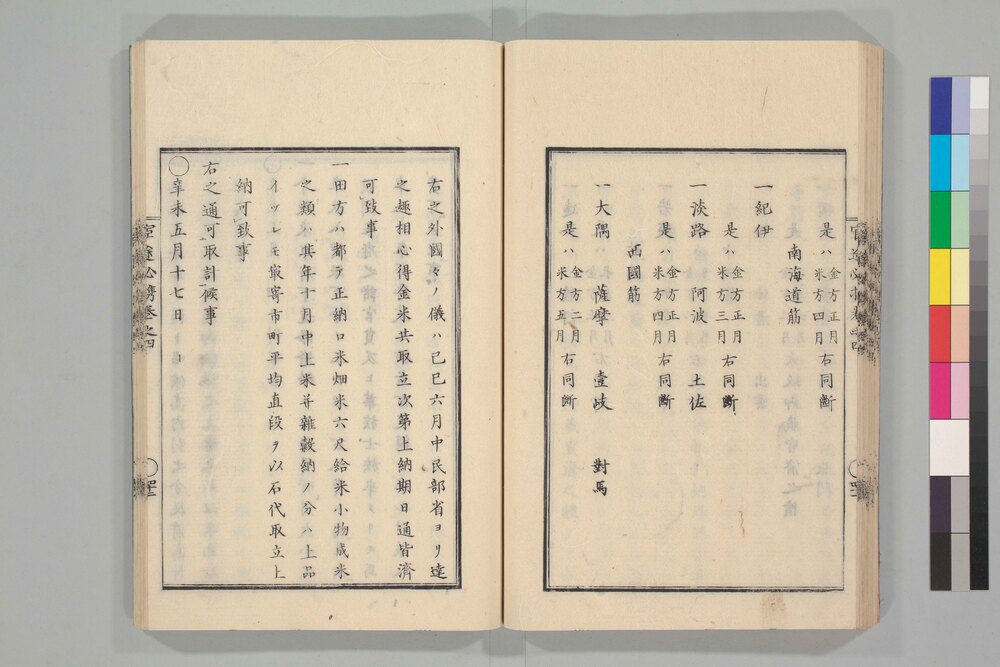 是ハ 金方正月 米方四月 右同斷
南海道筋
一紀伊
是ハ 金方正月 米方三月 右同斷
一淡路 阿波 土佐
是ハ 金方正月 米方四月 右同斷
西國筋
一大隅 薩摩 壹岐 對馬
是ハ 金方二月 米方五月 右同斷
右之外國々ノ儀ハ己巳六月中民部省ヨリ達
之趣相心得金米共取立次第上納期日通皆濟
可致事
一田方ハ都テ正納口米畑米六尺給米小物成米
之類ハ其年十月中上米并雜穀納ノ分ハ上品
イツレモ最寄市町平均直段ヲ以石代取立上
納可致事
右之通可取計候事
○辛未五月十七日
官途必携卷之四